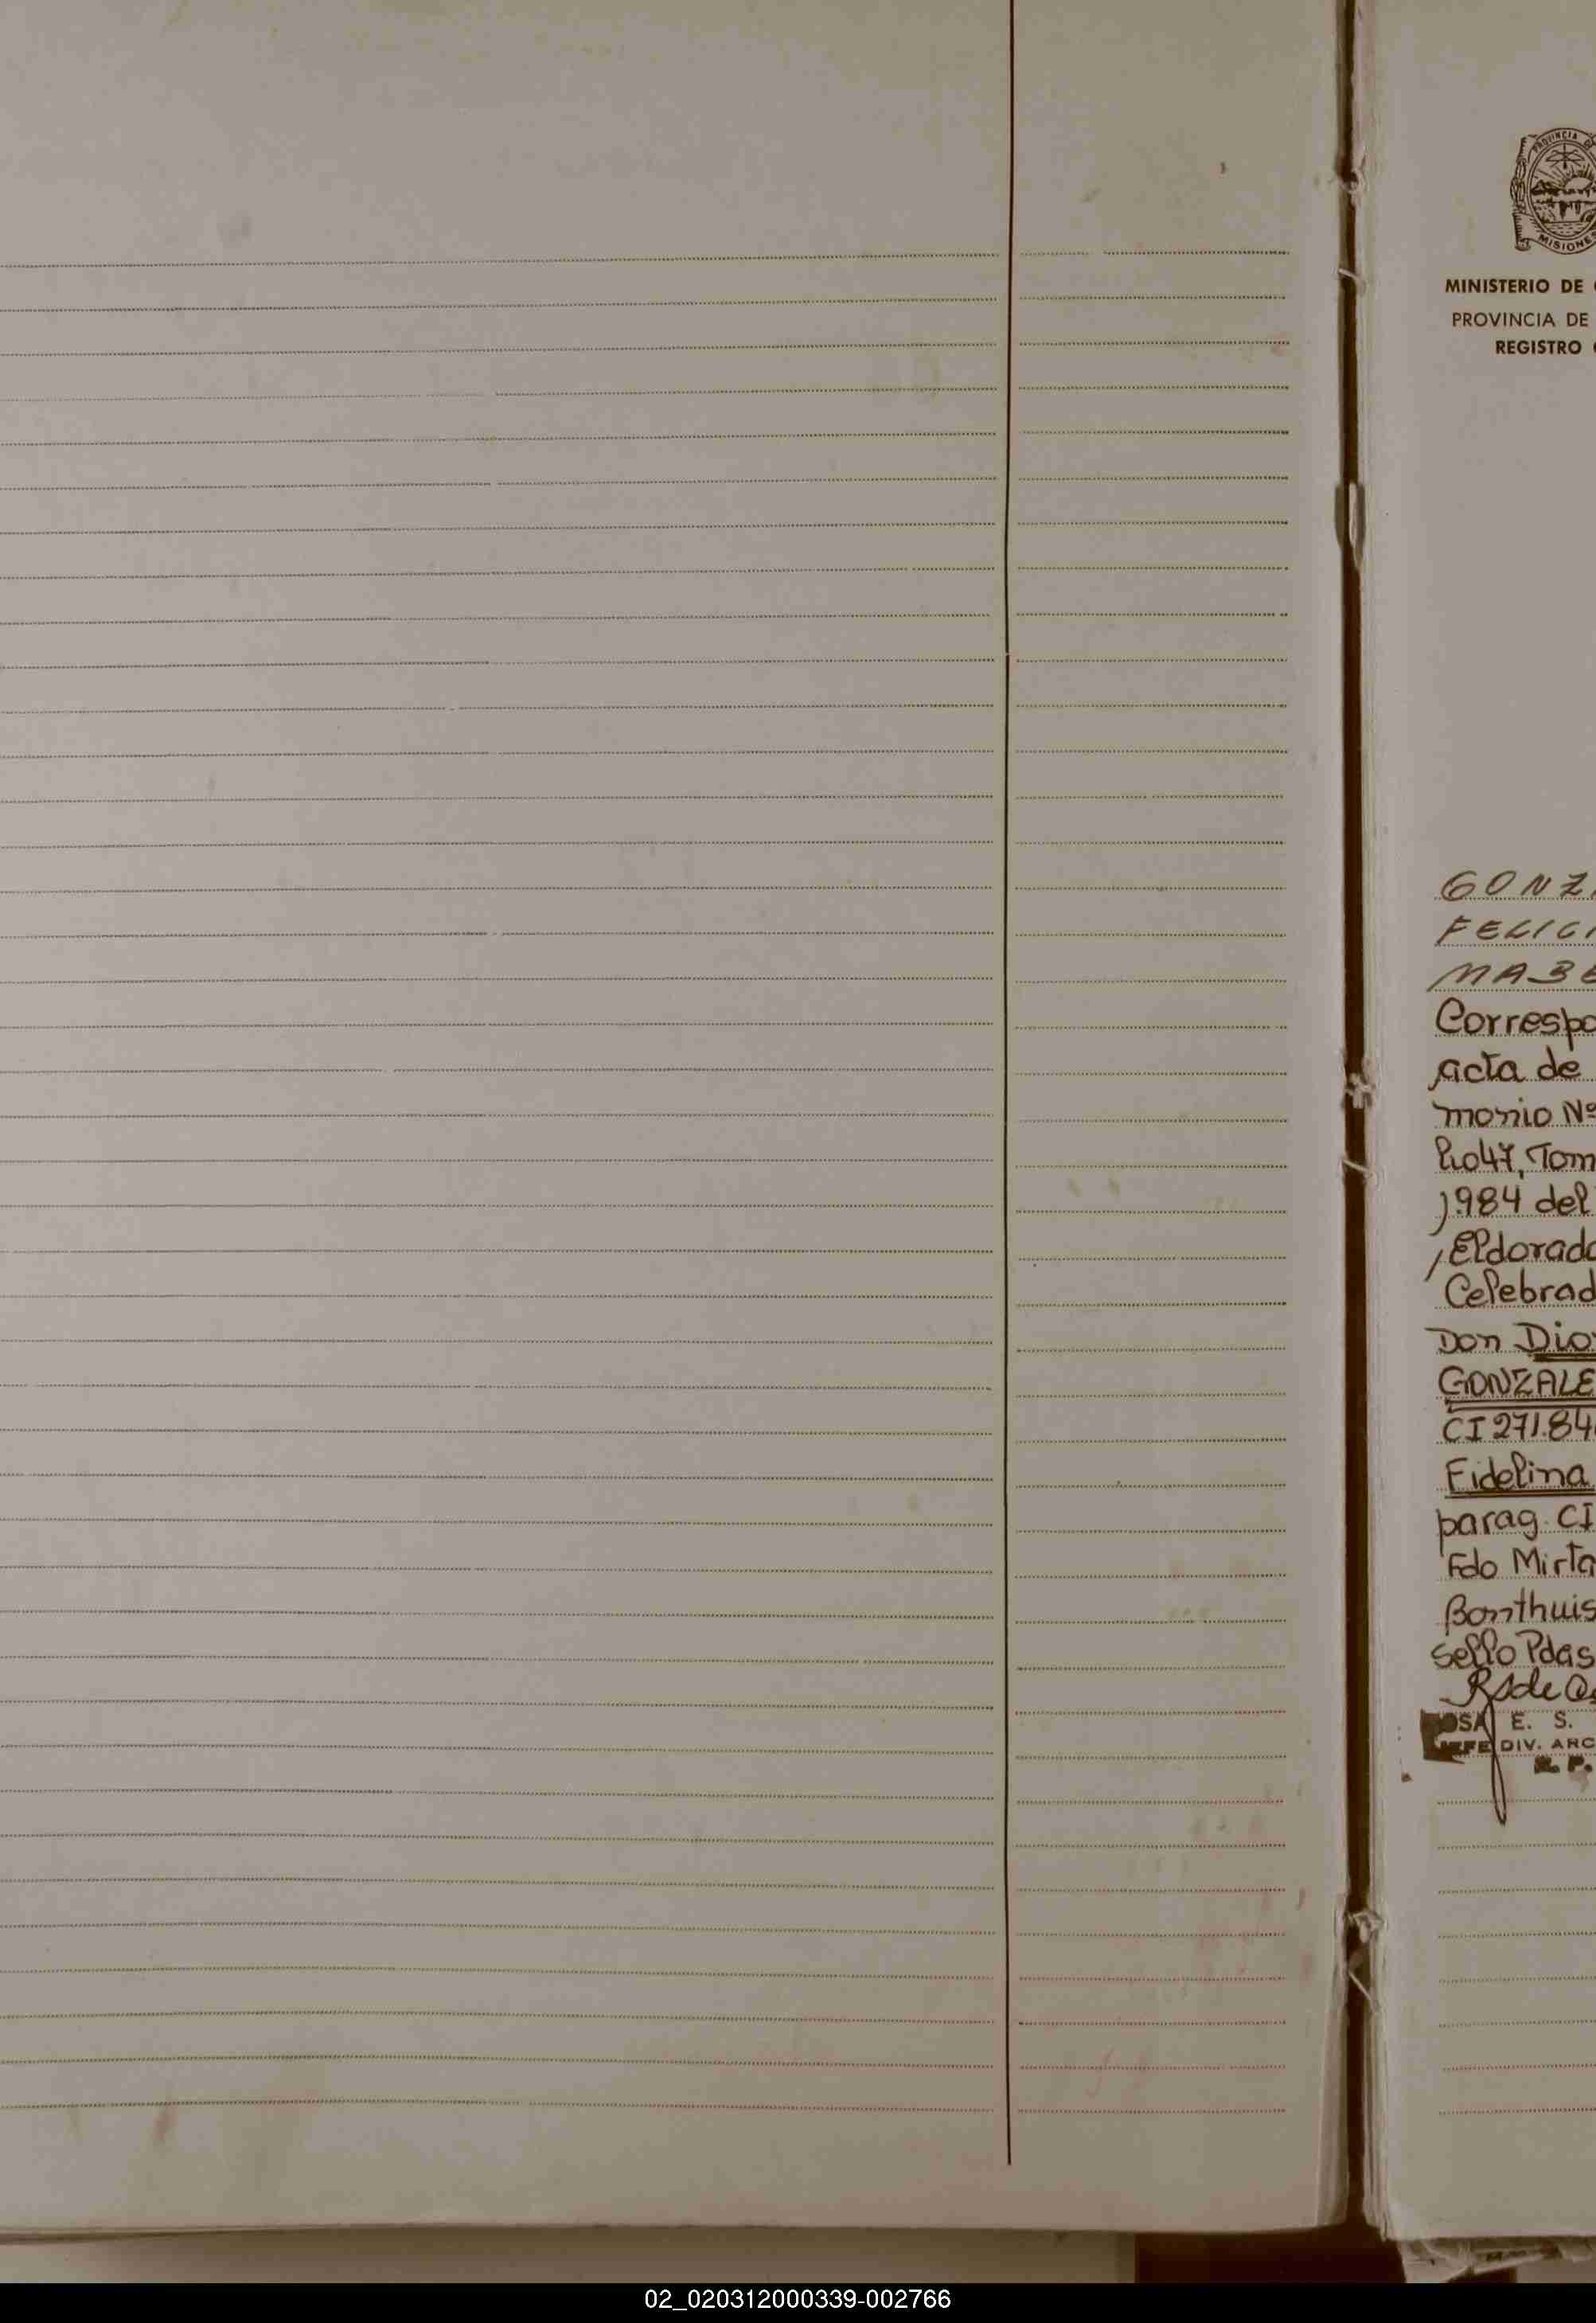 PROVINCIA DE
MISIONES
MINISTERIO DE
PROVINCIA DE
REGISTRO
GONZ
FELICI
MABE
Correspo
acta de
monio Nº
Tom
1984 del
Eldorado
Celebrad
Don Dio
GONZALE
CI 271.84
Fidelina
parag. CI
Fdo Mirta
Bonthuis
Sello Pdas
OSA E. S.
JEFE DIV. ARC
R. P.
02_020312000339-002766